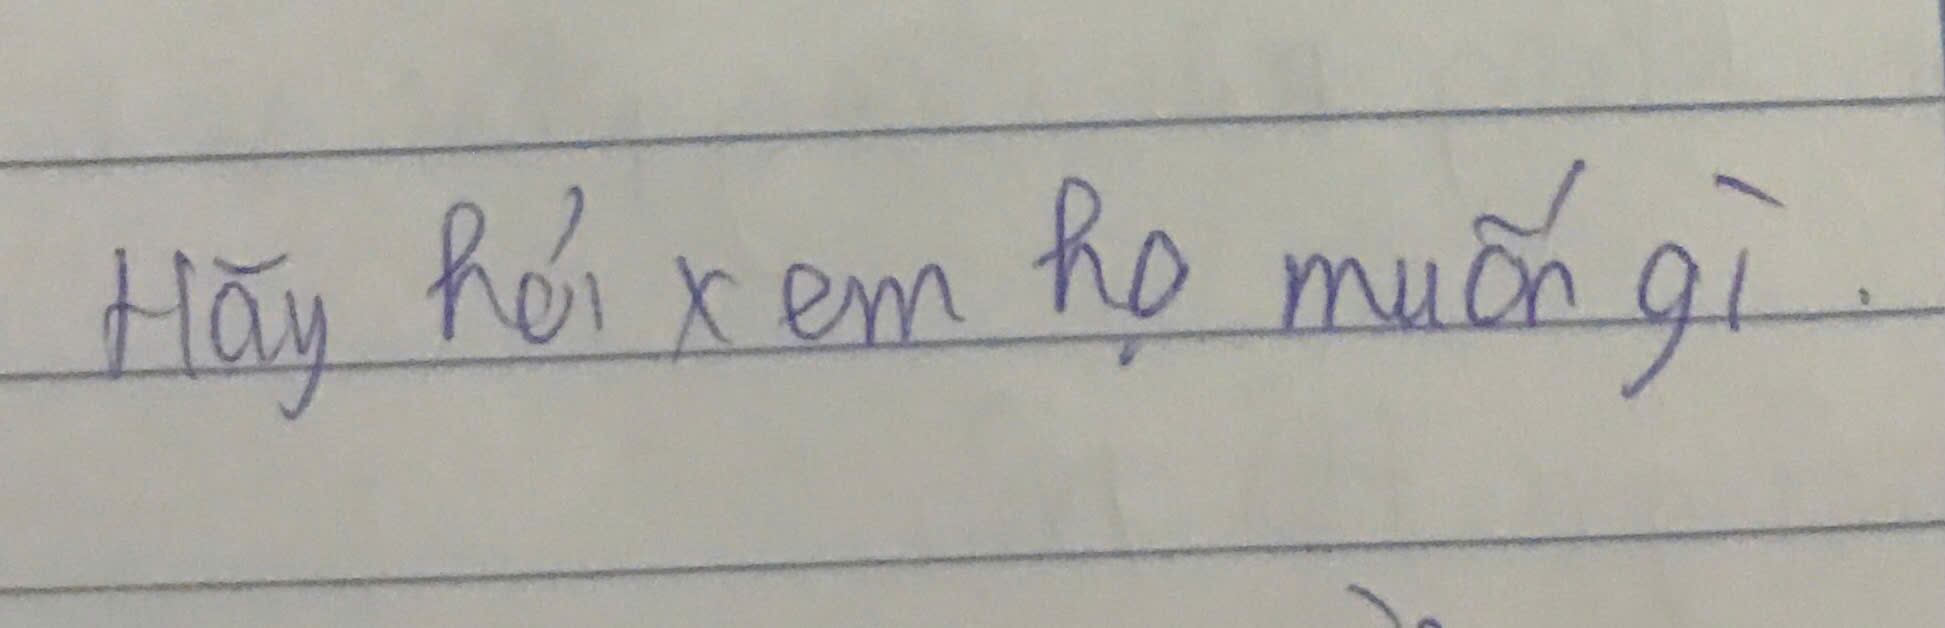 Hãy hỏi xem họ muốn gì.